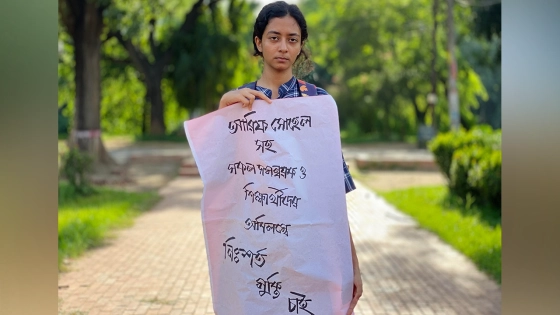 আরিফ সোহেল
সহ
সকল সমন্বয়ক ও
শিক্ষার্থীদের
অবিলম্বে
নিঃশর্ত
মুক্তি
চাই